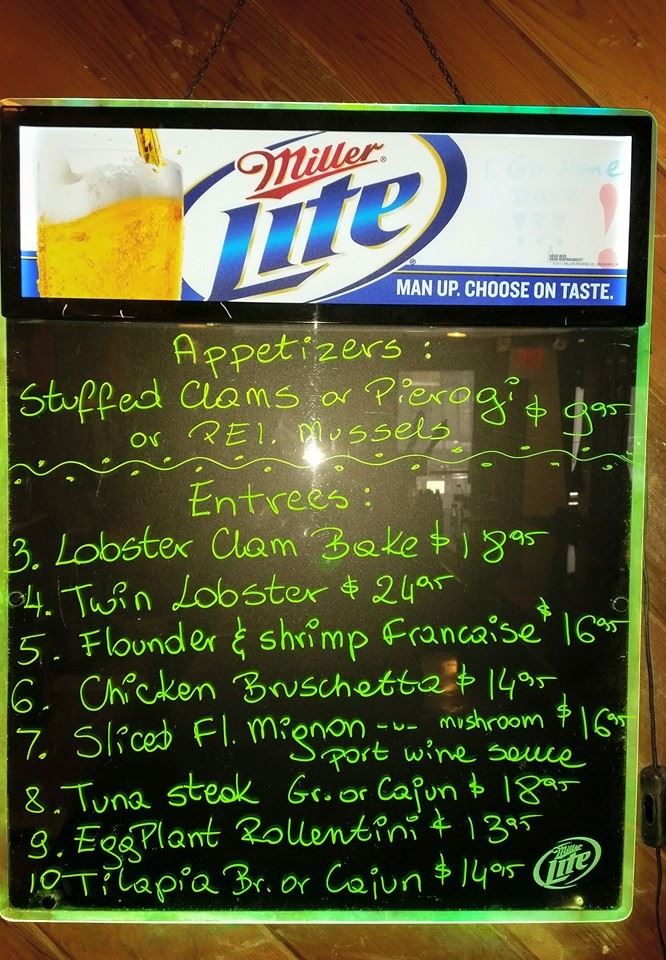 Miller
Lite
1. Go Home
Dave
!!! !
MAN UP. CHOOSE ON TASTE.
Appetizers :
Stuffed Clams or Pierogi $ 9 95
or P.E.I. Mussels
Entrees :
3. Lobster Clam Bake $ 18 95
4. Twin Lobster $ 24 95
5. Flounder & shrimp Francaise $ 16 95
6. Chicken Bruschetta $ 14 95
7. Sliced Fl. Mignon -~- mushroom $ 16 95
port wine sauce
8. Tuna steak Gr. or Cajun $ 18 95
9. EggPlant Rollentini $ 13 95
10 Tilapia Br. or Cajun $ 14 95
Miller
Lite